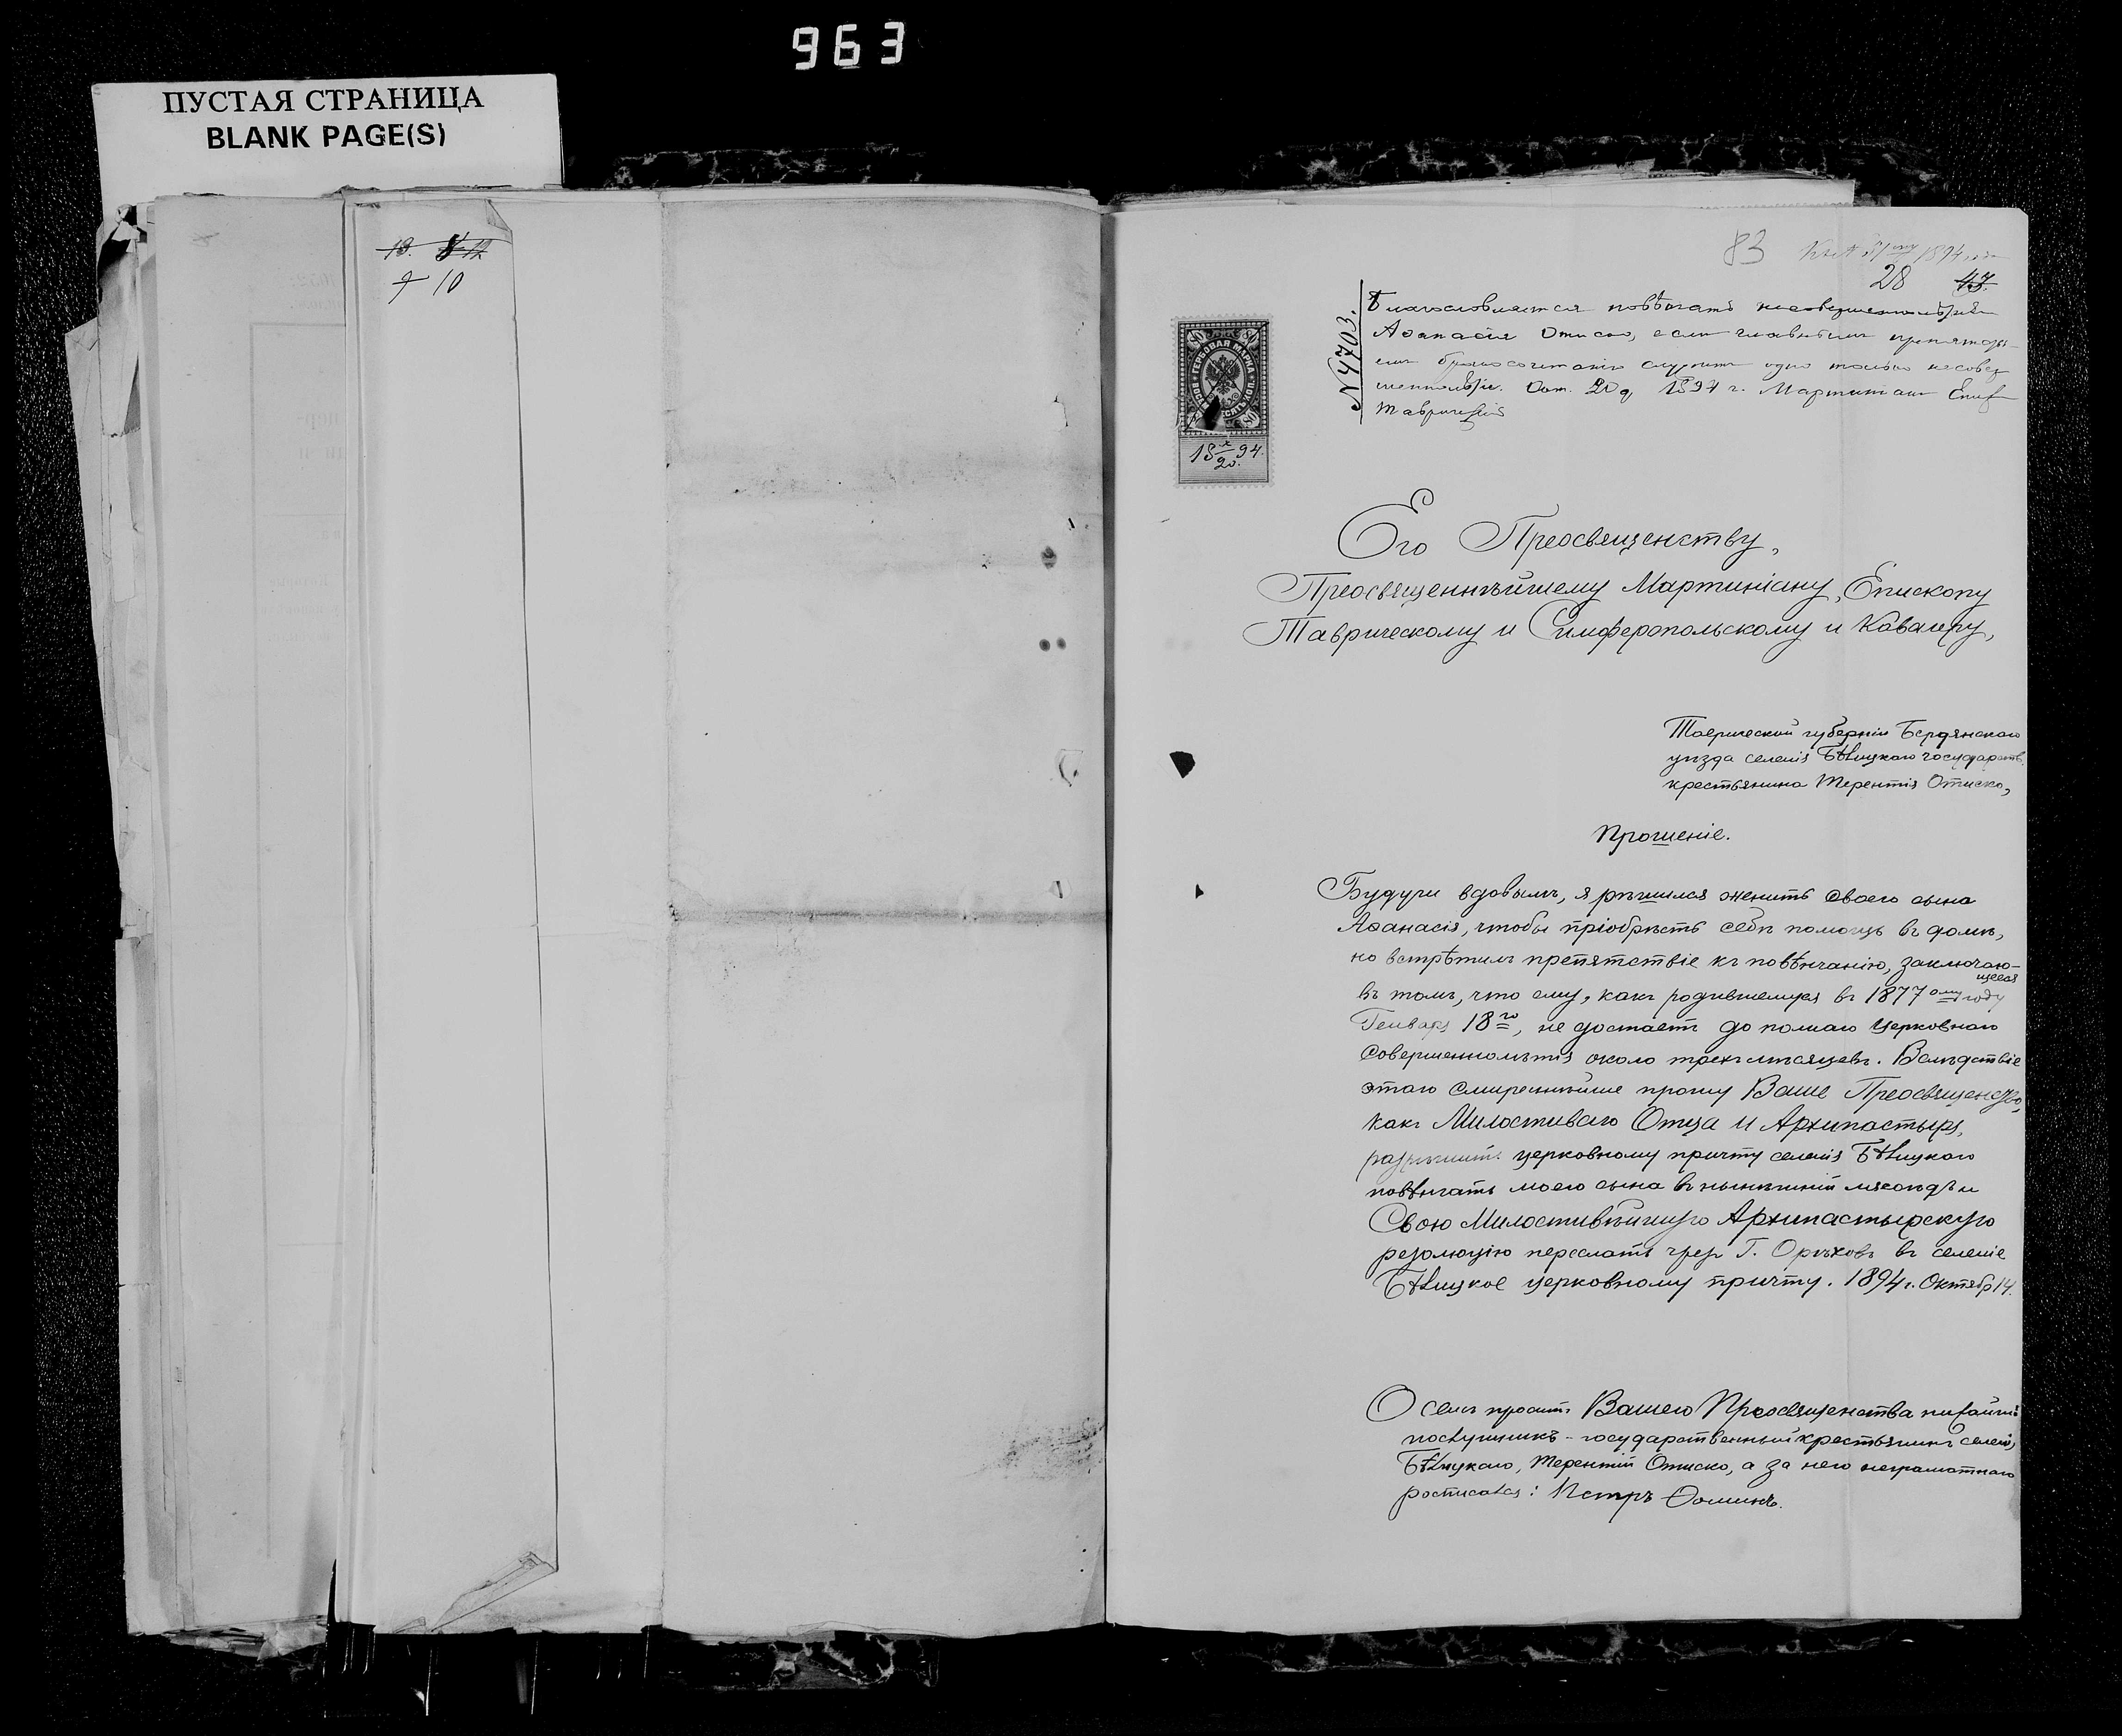 963
ПУСТАЯ СТРАНИЦА
BLANK PAGE(S)
13. 8 12
9 10
83 1894
28 43.
№ 4703.
Благословляется повѣнчать несовершеннолѣтняго
Аѳанасія Отиско, если главнымъ препятстві-
емъ бракосочетанію служитъ одно только несовер
шеннолѣтіе. Окт. 20 д. 1894 г. Мартиніанъ Епис
Таврическій
80 80
ГЕРБОВАЯ МАРКА
80
18 X/20. 94.
Его Преосвященству,
Преосвященнѣйшему Мартиніану, Епископу
Таврическому и Симферопольскому и Кавалеру,
Таврической губерніи Бердянскаго
уѣзда селенія Бѣлицкаго государств.
крестьянина Терентія Отиско,
Прошеніе.
Будучи вдовымъ, я рѣшился женить своего сына
Аѳанасія, чтобы пріобрѣсть себѣ помощь въ домѣ,
но встрѣтилъ препятствіе къ повѣнчанію, заключаю-
щееся
въ томъ, что ему, какъ родившемуся въ 1877 ому году
Генваря 18го, не достаетъ до полнаго церковнаго
совершеннолѣтія около трехъ мѣсяцевъ. Вслѣдствіе
этаго смиреннѣйше прошу Ваше Преосвященство,
какъ Милостиваго Отца и Архипастыря,
разрѣшить церковному причту селенія Бѣлицкаго
повѣнчать моего сына въ нынѣшній мясоѣдъ и
Свою Милостивѣйшую Архипастырскую
резолюцію переслать чрезъ Г. Орѣховъ въ селеніе
Бѣлицкое церковному причту. 1894 г. Октябр 14.
О семъ проситъ Вашего Преосвященства нижайшій
послушникъ - государственный крестьянинъ селенія
Бѣлицкаго, Терентій Отиско, а за него неграмотнаго
росписался: Петръ Ѳоминъ.